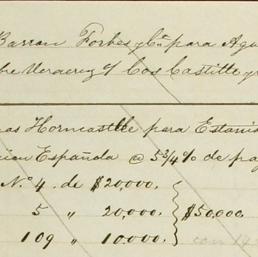 Barron Forbes y Ca. para Agu
bre Veracruz
as Horncastle para Estanis
cion Española @ 5 3/4 % de pa
No. 4 de $20,000.
5 " 20,000. $50,000
109 " 10.000.